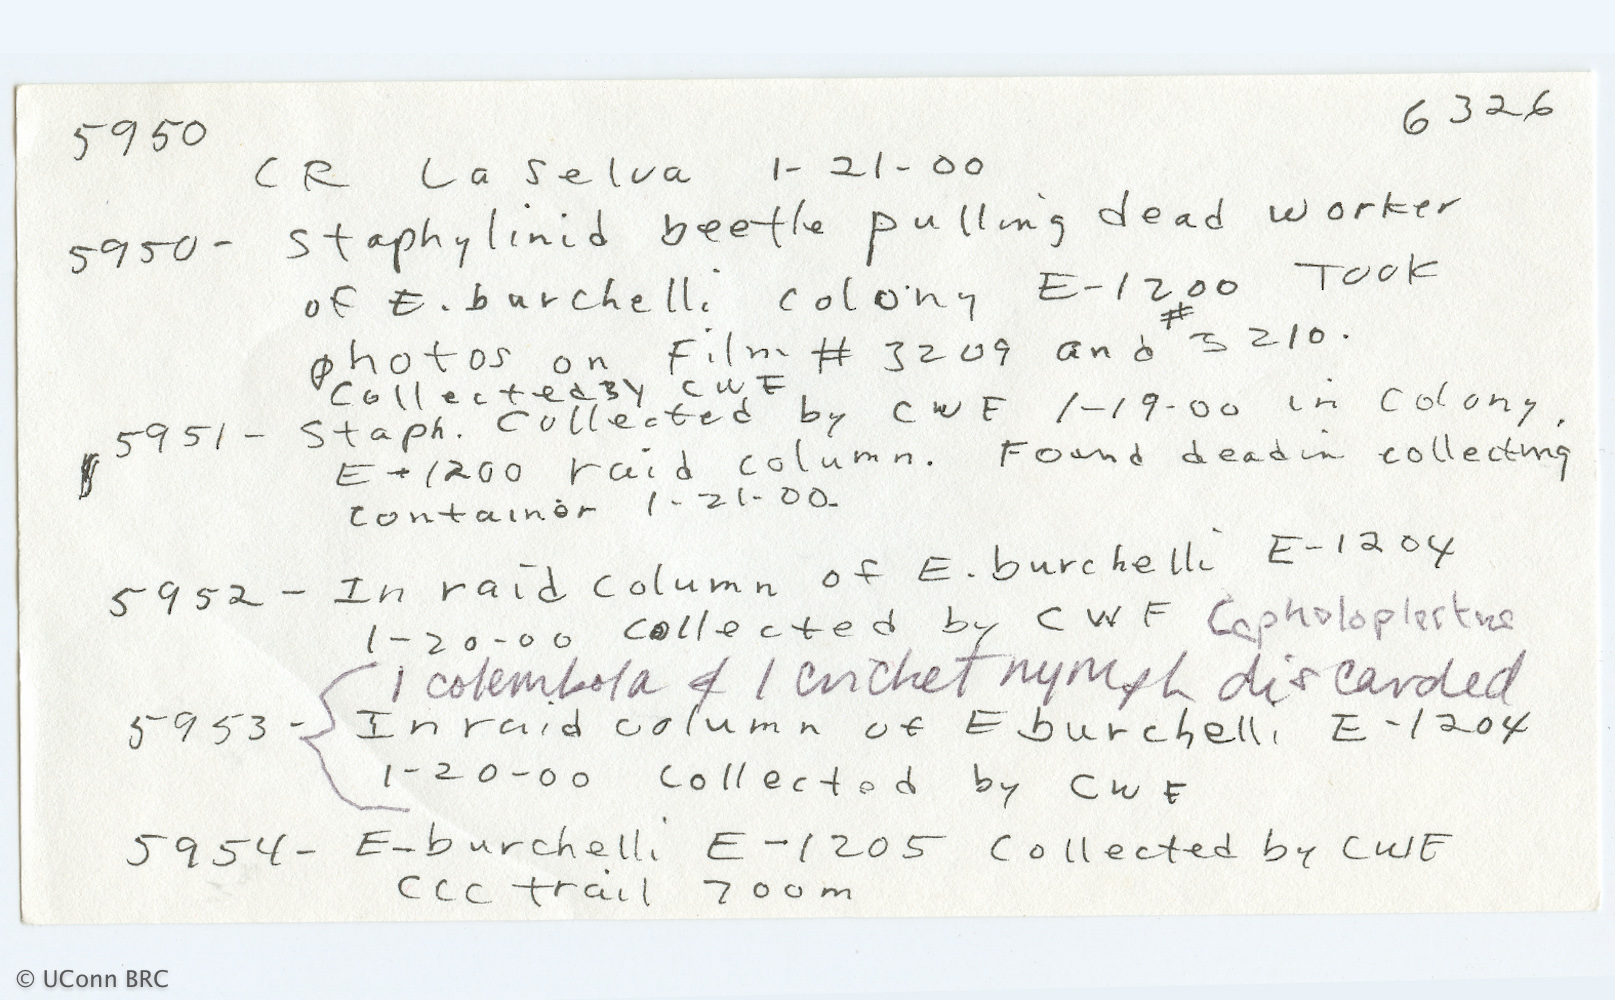 5950
6326
CR La Selva 1-21-00
5950- Staphylinid beetle pulling dead worker
of E. burchelli colony E-1200 Took
photos on Film # 3209 and #3210.
Collected By CWE
5951- Staph. Collected by CWE 1-19-00 in Colony,
E-1200 raid column. Found dead in collecting
container 1-21-00.
5952- In raid column of E. burchelli E-1204
1-20-00 collected by CWE
1 colembola & 1 cricket nymph discarded
5953- In raid column of E burchelli E-1204
1-20-00 Collected by CWE
5954- E-burchelli E-1205 Collected by CWE
CCC trail 700m
© UConn BRC